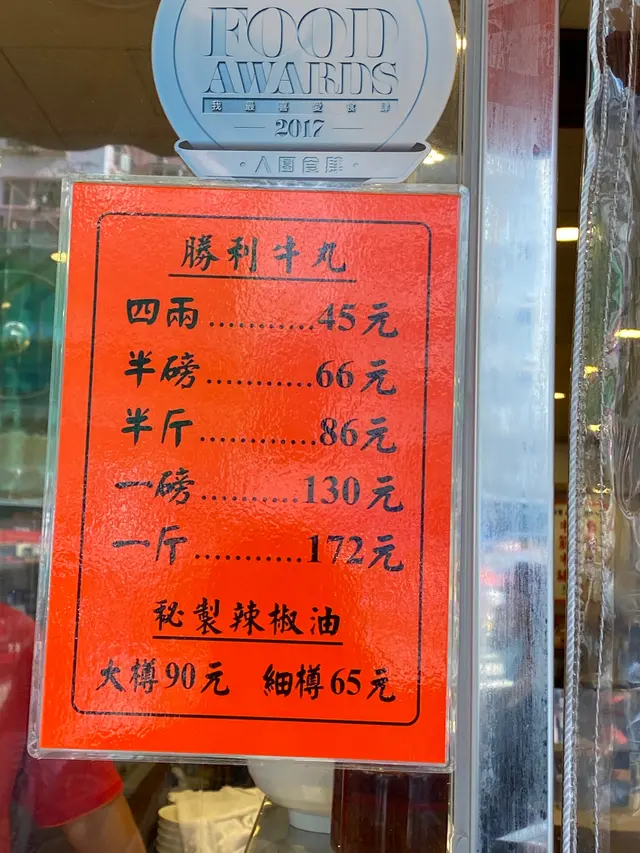 FOOD
AWARDS
我最喜愛食肆
2017
·人圍食肆·
勝利牛丸
四兩...........45元
半磅...........66元
半斤............86元
一磅..........130元
一斤...........172元
秘製辣椒油
大樽90元 細樽65元